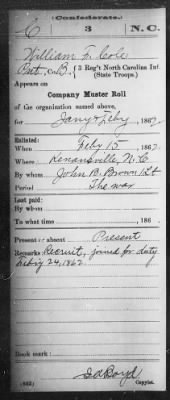 (Confederate.)
C 3 N.C.
William F. Cole
Pvt, Co. B, 3 Reg't North Carolina Inf.
(State Troops.)
Appears on
Company Muster Roll
of the organization named above,
for Jany & Feby, 1862
Enlisted:
When Feby 15, 1862
Where Kenansville, N.C.
By whom John B. Brown 1 Lt
Period The war
Last paid:
By whom
To what time , 186
Present or absent Present
Remarks: Recruit, joined for duty
Feb'y 24, 1862
Book mark:
(642) Copyist.